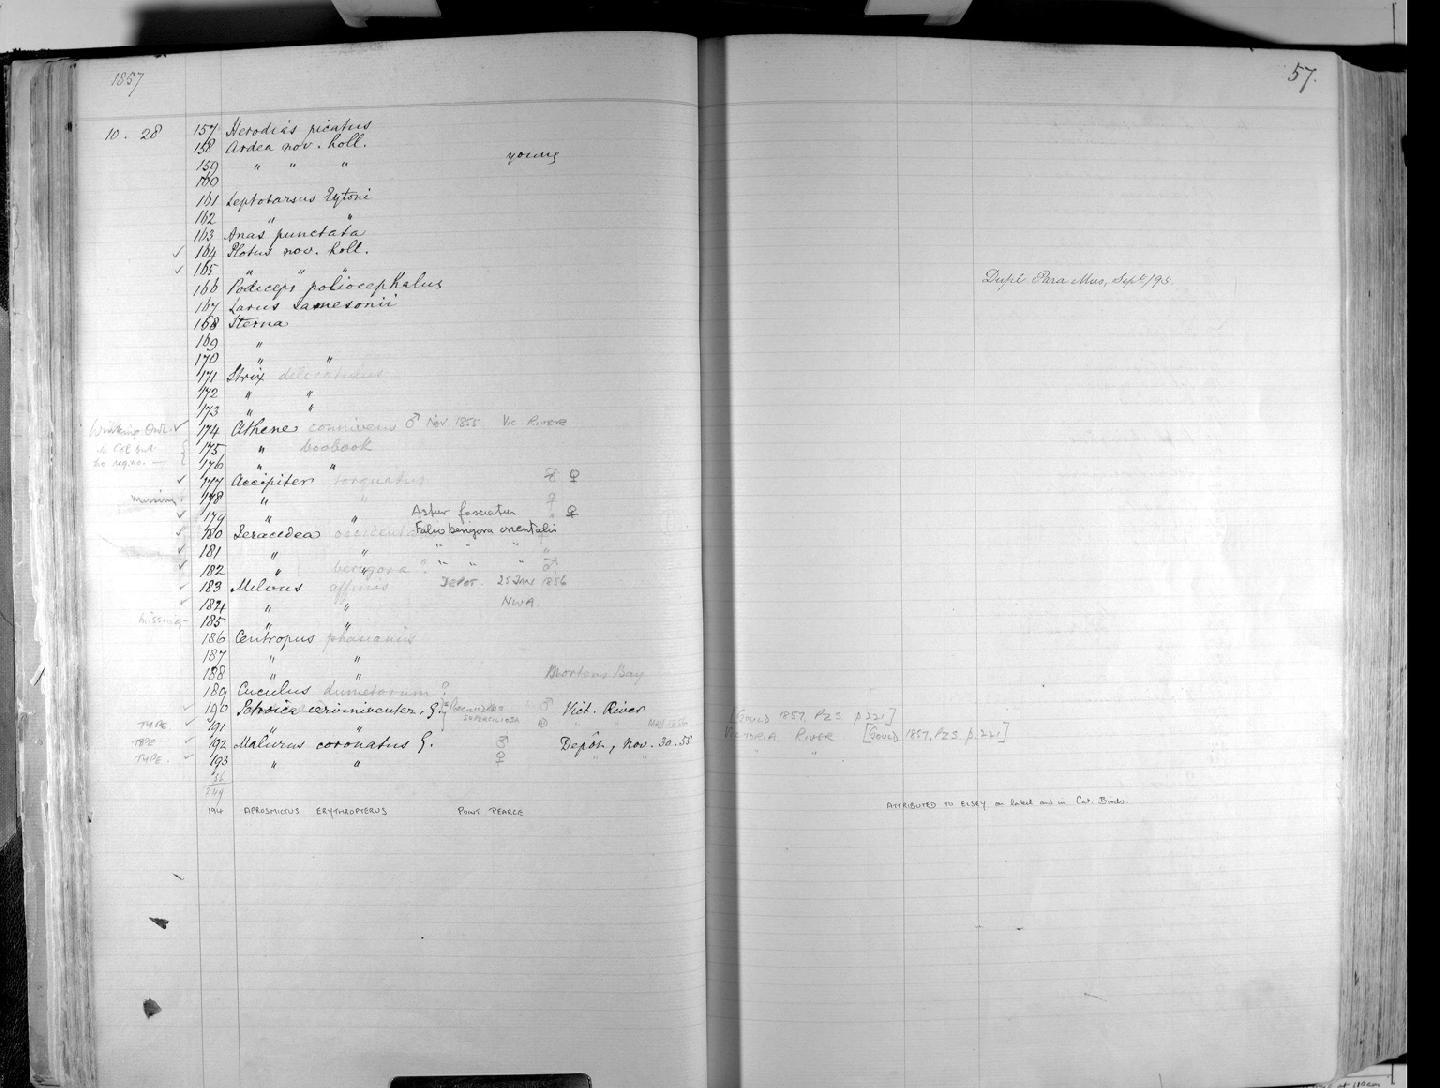 1857
57.
10. 28 157 Herodias picatus
158 Ardea nov. holl.
159 " " " young
160
161 Leptotarsus Eytoni
162 " "
163 Anas punctata
✓ 164 Plotus nov. holl.
✓ 165 " " "
166 Podiceps poliocephalus Dupl. Para Mus, Sept/95.
167 Larus Jamesonii
168 Sterna
169 "
170 " "
171 Strix delicatulus
172 " "
173 " "
✓ 174 Athene connivens ♂ Nov 1855 Vic River
175 " boobook
no reg. no. — 176 " "
✓ 177 Accipiter torquatus ♀ ♀
missing 178 " " ♀
✓ 179 " " Astur fasciatus ♀
✓ 180 Ieracidea occidentalis Falco berigora orientalis
✓ 181 " " " " " "
✓ 182 " berigora ? " " " ♂
✓ 183 Milvus affinis Depot. 25 Jan 1856
✓ 184 " " NWA
missing 185 " "
186 Centropus phasianus
187 " "
188 " " Mortons Bay
189 Cuculus dumetorum ?
✓ 190 cerviniventer, G. superciliosa ♂ Vict. River [Gould 1857, PZS p.221]
TYPE ✓ 191 " " May 1856
TYPE ✓ 192 Malurus coronatus G. ♂ Depôt, Nov. 30. 55 Victoria River [Gould 1857, PZS p.221]
TYPE. ✓ 193 " " ♀ " " " "
36
249
194 APROSMICTUS ERYTHROPTERUS POINT PEARCE ATTRIBUTED TO ELSEY on label and in Cat. Birds.